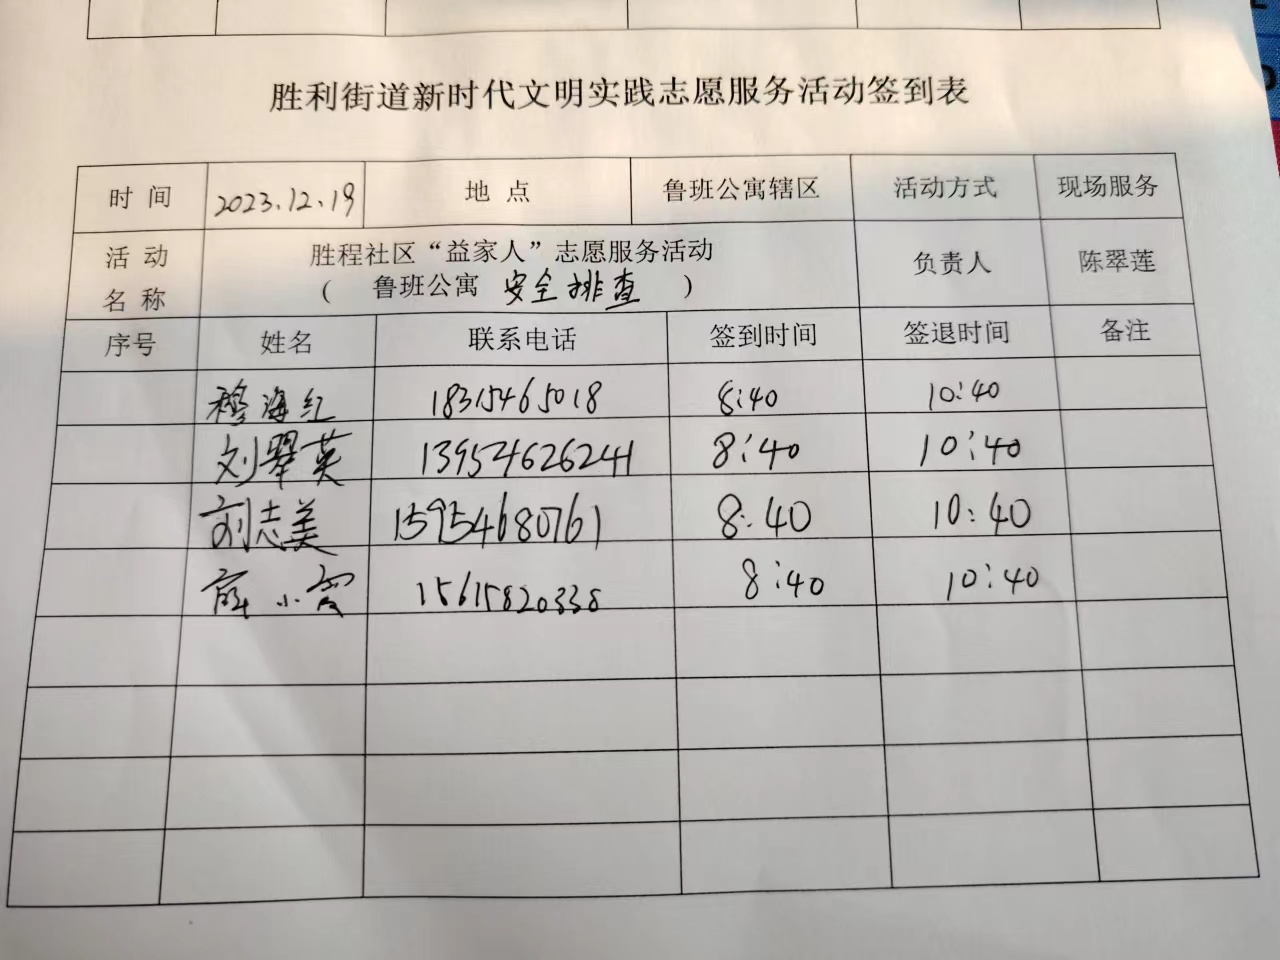 胜利街道新时代文明实践志愿服务活动签到表
时间 2023.12.19 地点 鲁班公寓辖区 活动方式 现场服务
活动名称 胜程社区“益家人”志愿服务活动 负责人 陈翠莲
(鲁班公寓 安全排查)
序号 姓名 联系电话 签到时间 签退时间 备注
穆海红 18315465018 8:40 10:40
刘翠英 13954626241 8:40 10:40
刘志美 15954680761 8:40 10:40
薛小霞 15615820338 8:40 10:40